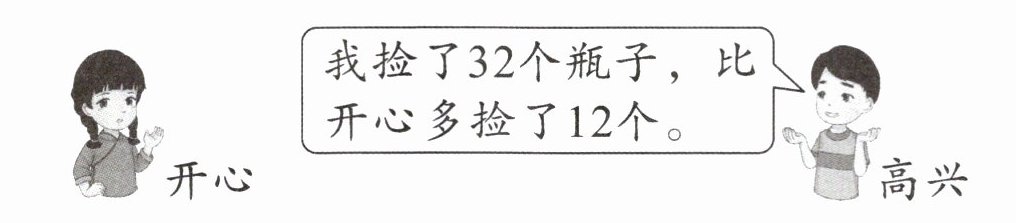 我捡了32个瓶子，比
开心多捡了12个。
开心
高兴